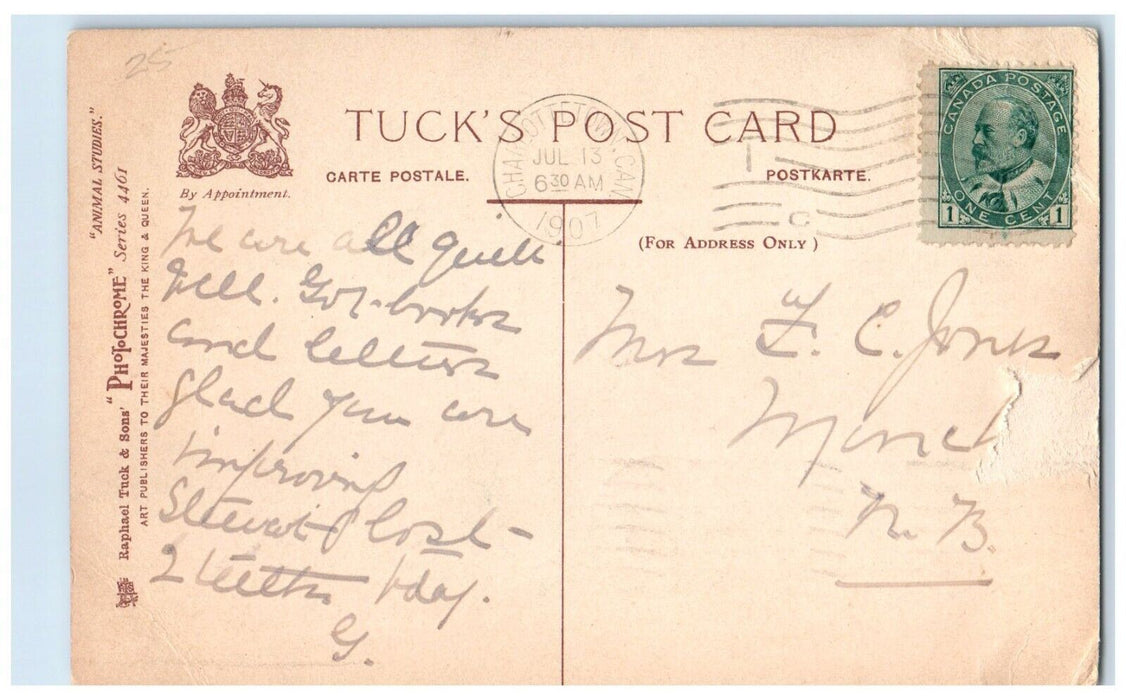 25
TUCK'S POST CARD
CARTE POSTALE.
POSTKARTE.
(FOR ADDRESS ONLY)
By Appointment.
"ANIMAL STUDIES."
Raphael Tuck & Sons' "PHOTOCHROME" Series 4461
ART PUBLISHERS TO THEIR MAJESTIES THE KING & QUEEN.
CHARLOTTETOWN, CAN
JUL 13
6 30 AM
1907
C
CANADA POSTAGE
1 ONE CENT 1
We are all quite
well. Got books
and letters
glad you are
improving
Stewart lost
2 teeth today.
G.
Mrs F. C. Jones
Monc
N. B.